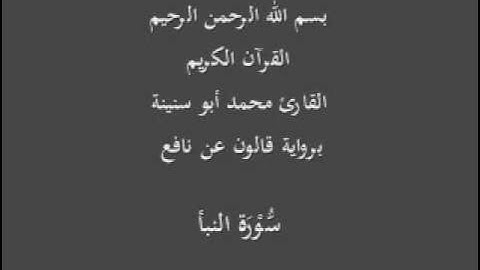 بسم الله الرحمن الرحيم
القرآن الكريم
القارئ محمد أبو سنينة
برواية قالون عن نافع
سُّوْرَة النبأ